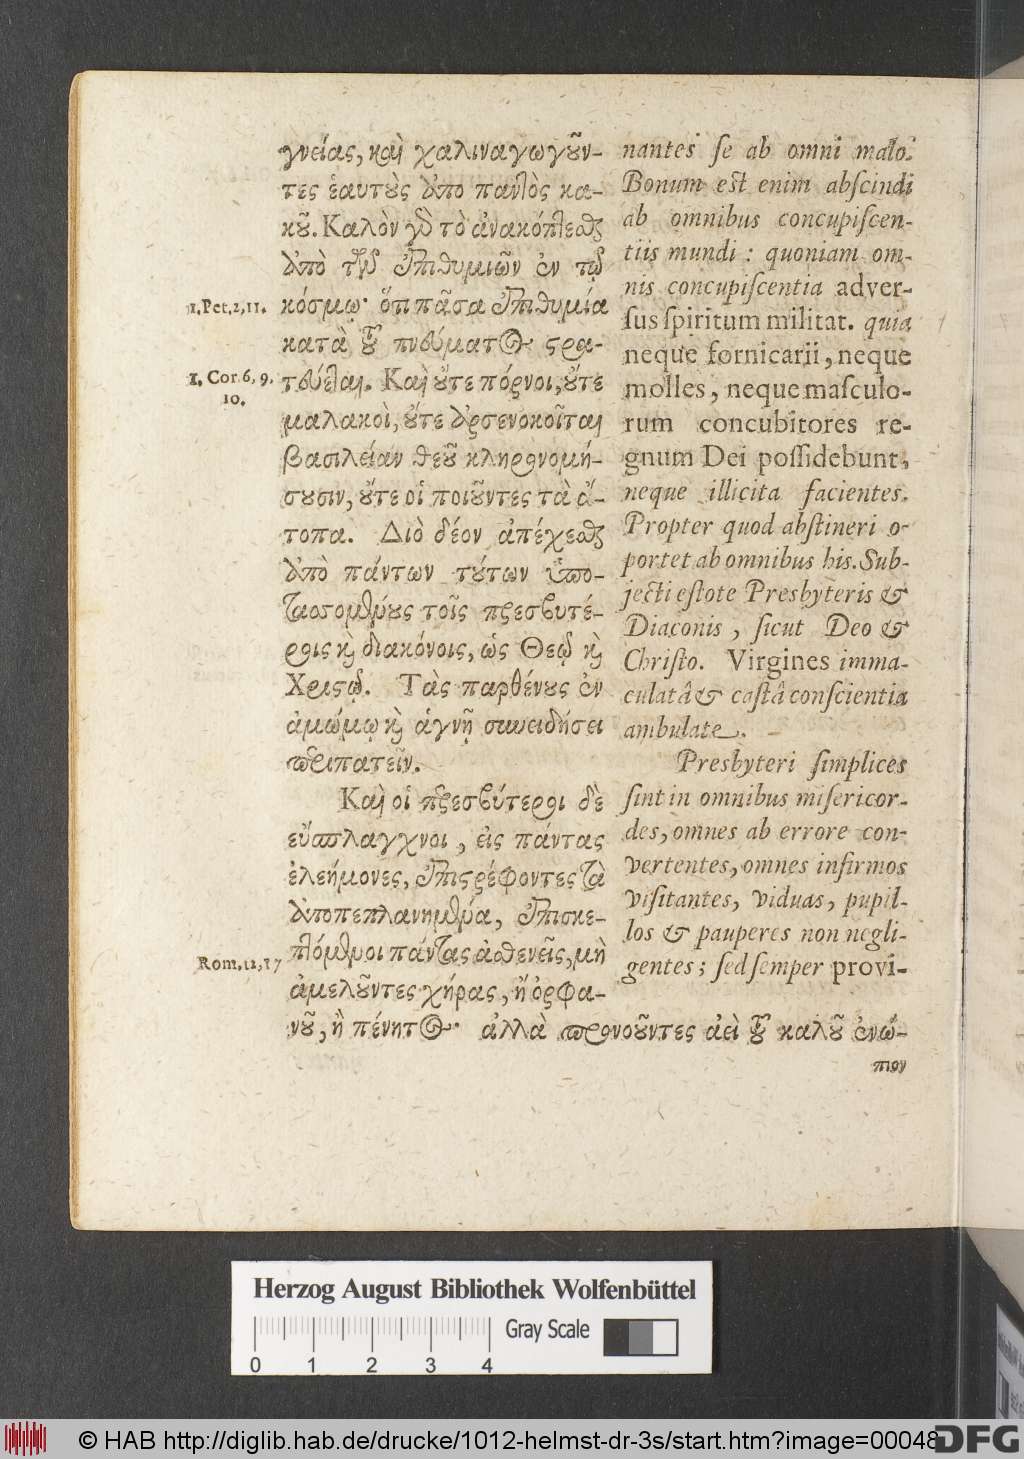 γνείας, καὶ χαλιναγωγοῦν-
τες ἑαυτοὺς ἀπὸ παντὸς κα-
κοῦ. Καλὸν γὰρ τὸ ἀνακόπτεσθαι
ἀπὸ τῶν ἐπιθυμιῶν ἐν τῷ
1. Pet. 2, 11.
κόσμῳ· ὅτι πᾶσα ἐπιθυμία
κατὰ τοῦ πνεύματος στρα-
1. Cor. 6, 9.
10.
τεύεται. Καὶ οὔτε πόρνοι, οὔτε
μαλακοὶ, οὔτε ἀρσενοκοῖται
βασιλείαν θεοῦ κληρονομή-
σουσιν, οὔτε οἱ ποιοῦντες τὰ ἄ-
τοπα. Διὸ δέον ἀπέχεσθαι
ἀπὸ πάντων τούτων ὑπο-
τασσομένους τοῖς πρεσβυτέ-
ροις καὶ διακόνοις, ὡς Θεῷ καὶ
Χριστῷ. Τὰς παρθένους ἐν
ἀμώμῳ καὶ ἁγνῇ συνειδήσει
περιπατεῖν.
Καὶ οἱ πρεσβύτεροι δὲ
εὔσπλαγχνοι, εἰς πάντας
ἐλεήμονες, ἐπιστρέφοντες τὰ
ἀποπεπλανημένα, ἐπισκε-
Rom. 12, 17
πτόμενοι πάντας ἀσθενεῖς, μὴ
ἀμελοῦντες χήρας, ἢ ὀρφα-
νοῦ, ἢ πένητος· ἀλλὰ προνοοῦντες ἀεὶ τοῦ καλοῦ ἐνώ-
πιον
nantes ſe ab omni malo.
Bonum eſt enim abſcindi
ab omnibus concupiſcen-
tiis mundi : quoniam om-
nis concupiſcentia adver-
ſus ſpiritum militat. quia
neque fornicarii, neque
molles, neque maſculo-
rum concubitores re-
gnum Dei poſſidebunt,
neque illicita facientes.
Propter quod abſtineri o-
portet ab omnibus his. Sub-
jecti eſtote Presbyteris &
Diaconis, ſicut Deo &
Chriſto. Virgines imma-
culatâ & caſtâ conſcientia
ambulate.
Presbyteri ſimplices
ſint in omnibus miſericor-
des, omnes ab errore con-
vertentes, omnes infirmos
viſitantes, viduas, pupil-
los & pauperes non negli-
gentes; ſed ſemper provi-
Herzog August Bibliothek Wolfenbüttel
Gray Scale
0 1 2 3 4
© HAB http://diglib.hab.de/drucke/1012-helmst-dr-3s/start.htm?image=00048
DFG